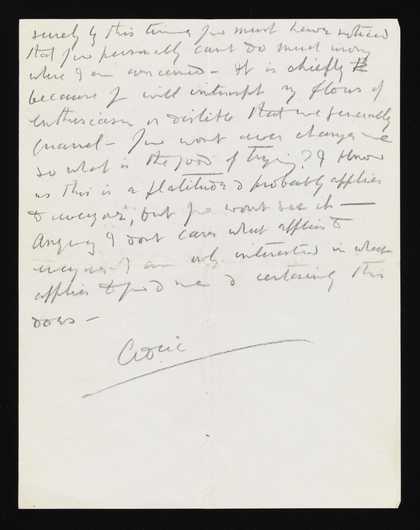 surely by this time you must have noticed
that you personally cant do much wrong
where I am concerned – It is chiefly
because you will interrupt my flows of
enthusiasm or dislike that we generally
quarrel – You wont ever change me
so what is the good of trying? I know
as this is a platitude & probably applies
to everyone, but you wont see it —
Anyway I dont care what applies to
everyone I am only interested in what
applies to you & me & certainly this
does –